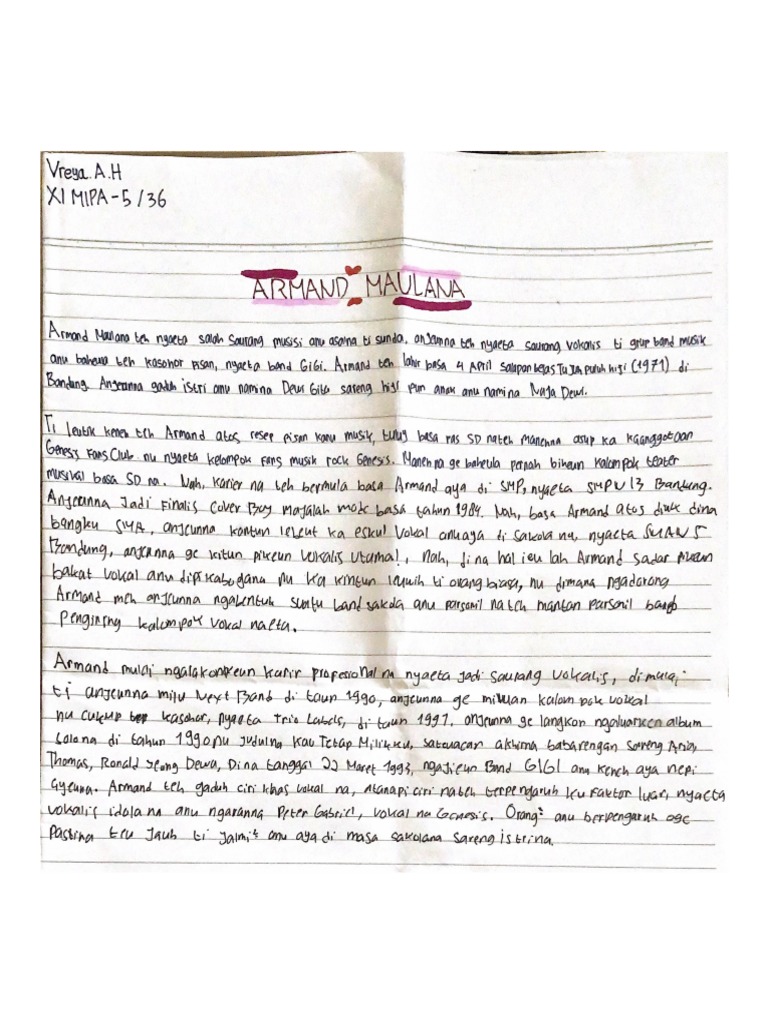 Vreya.A.H
XI MIPA-5/36
ARMAND MAULANA
Armand Maulana teh nyaeta salah saurang musisi anu asalna ti sunda. anjeunna teh nyaeta saurang vokalis ti grup band musik
anu baheula teh kasohor pisan, nyaeta band GIGI. Armand teh lahir basa 4 April salapan belas Tujuh puluh hiji (1971) di
Bandung. Anjeunna gaduh istri anu namina Dewi Gita sareng hiji pun anak anu namina Naja Dewi.
Ti leutik keneh teh Armand atos resep pisan kanu musik, basa ras SD nateh Manehna asup ka kaanggotaan
Genesis Fans Club nu nyaeta kelompok fans musik rock Genesis. Manehna ge baheula pernah bikeun kalompok teater
musikal basa SD na. Nah, karier na teh bermula basa Armand aya di SMP, nyaeta SMPN 13 Bandung.
Anjeunna Jadi Finalis Cover Boy majalah mok basa tahun 1984. Nah, basa Armand atos diuk dina
bangku SMA, anjeunna kontun lebeut ka eskul vokal anu aya di sakola na, nyaeta SMAN 5
Bandung, anjeunna ge kitun pikeun vokalis utama!, Nah, dina hal ieu lah Armand sadar
bakat vokal anu dipikabogana nu ka kintun leuwih ti orang biasa, nu dimana ngadorong
Armand meh anjeunna ngabentuk suatu band sakola anu parsonil na teh mantan parsonil band
pengiring kalompok vokal naeta.
Armand mulai ngalakonkeun karir profesional na nyaeta jadi saurang vokalis, dimulai
ti anjeunna milu Next Band di taun 1990, anjeunna ge miluan kalompok vokal
nu cukup kasohor, nyaeta Trio Labels, di taun 1991. anjeunna ge langkon ngaluarkeen album
solona di tahun 1990 nu judulna Kau Tetap Milikku, satuacan akhirna babarengan sareng Aria,
Thomas, Ronald jeung Dewa, Dina tanggal 22 Maret 1993, ngajieun Band GIGI anu keneh aya nepi
ayeuna. Armand teh gaduh ciri khas vokal na, atanapi ciri nateh terpengaruh ku faktor luar, nyaeta
vokalis idola na anu ngaranna Peter Gabriel, vokal na Genesis. Orang² anu berpengaruh oge
pastina teu jauh ti jalmi² anu aya di masa sakolana sareng istrina.